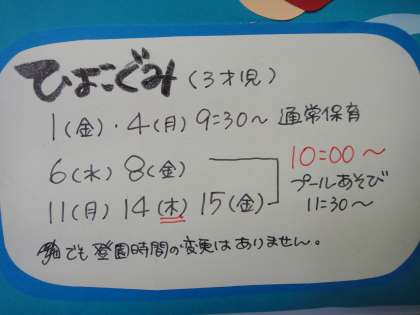 ひよこぐみ（３才児）
1（金）・4（月）9:30〜 通常保育
6（水）8（金）
10:00〜
プールあそび
11（月）14（木）15（金）
11:30〜
でも登園時間の変更はありません。